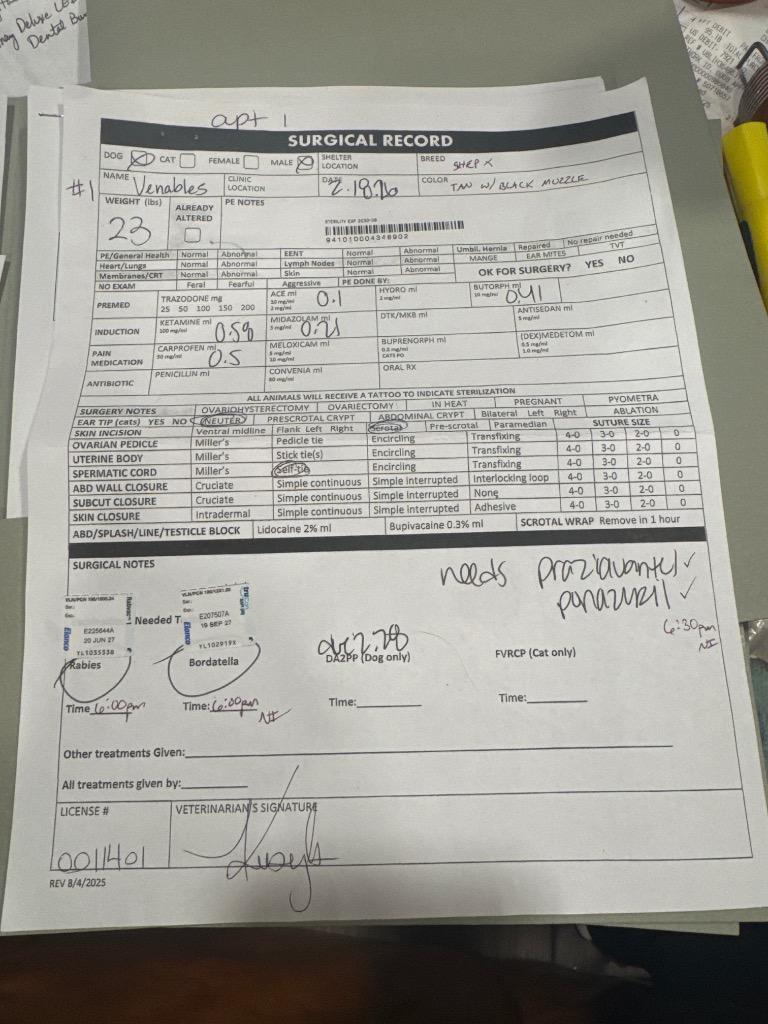 ney Deluxe
Dental
DEBIT
US DEBIT
apt 1
SURGICAL RECORD
DOG CAT FEMALE MALE SHELTER LOCATION BREED SHEP X
#1 NAME Venables CLINIC LOCATION DATE 2.18.26 COLOR TAN W/ BLACK MUZZLE
WEIGHT (lbs) 23 ALREADY ALTERED PE NOTES
STERILITY EXP 2030-08
941010004346902
PE/General Health Normal Abnormal EENT Normal Abnormal Umbil. Hernia Repaired No repair needed
Heart/Lungs Normal Abnormal Lymph Nodes Normal Abnormal MANGE EAR MITES TVT
Membranes/CRT Normal Abnormal Skin Normal Abnormal OK FOR SURGERY? YES NO
NO EXAM Feral Fearful Aggressive PE DONE BY:
PREMED TRAZODONE mg 25 50 100 150 200 ACE ml 10 mg/ml 2 mg/ml 0.1 HYDRO ml 2 mg/ml BUTORPH ml 10 mg/ml 0.41
INDUCTION KETAMINE ml 100 mg/ml 0.59 MIDAZOLAM ml 5 mg/ml 0.21 DTK/MKB ml ANTISEDAN ml 5 mg/ml
PAIN MEDICATION CARPROFEN ml 50 mg/ml 0.5 MELOXICAM ml 5 mg/ml 10 mg/ml BUPRENORPH ml 0.5 mg/ml CATS PO (DEX)MEDETOM ml 0.5 mg/ml 1.0 mg/ml
ANTIBIOTIC PENICILLIN ml CONVENIA ml 80 mg/ml ORAL RX
ALL ANIMALS WILL RECEIVE A TATTOO TO INDICATE STERILIZATION
SURGERY NOTES OVARIOHYSTERECTOMY OVARIECTOMY IN HEAT PREGNANT PYOMETRA
EAR TIP (cats) YES NO NEUTER PRESCROTAL CRYPT ABDOMINAL CRYPT Bilateral Left Right ABLATION
SKIN INCISION Ventral midline Flank Left Right Scrotal Pre-scrotal Paramedian SUTURE SIZE
OVARIAN PEDICLE Miller's Pedicle tie Encircling Transfixing 4-0 3-0 2-0 0
UTERINE BODY Miller's Stick tie(s) Encircling Transfixing 4-0 3-0 2-0 0
SPERMATIC CORD Miller's Self-tie Encircling Transfixing 4-0 3-0 2-0 0
ABD WALL CLOSURE Cruciate Simple continuous Simple interrupted Interlocking loop 4-0 3-0 2-0 0
SUBCUT CLOSURE Cruciate Simple continuous Simple interrupted None 4-0 3-0 2-0 0
SKIN CLOSURE Intradermal Simple continuous Simple interrupted Adhesive 4-0 3-0 2-0 0
ABD/SPLASH/LINE/TESTICLE BLOCK Lidocaine 2% ml Bupivacaine 0.3% ml SCROTAL WRAP Remove in 1 hour
SURGICAL NOTES
needs praziquantel ✓
ponazuril ✓
6:30pm
Needed T
Elanco E225644A 20 JUN 27 YL103553B
Elanco E207507A 19 SEP 27 YL102919X
due 2.28
Rabies Bordatella DA2PP (Dog only) FVRCP (Cat only)
Time 6:00pm Time: 6:00pm Time: Time:
Other treatments Given:
All treatments given by:
LICENSE # VETERINARIAN'S SIGNATURE
0011401
REV 8/4/2025